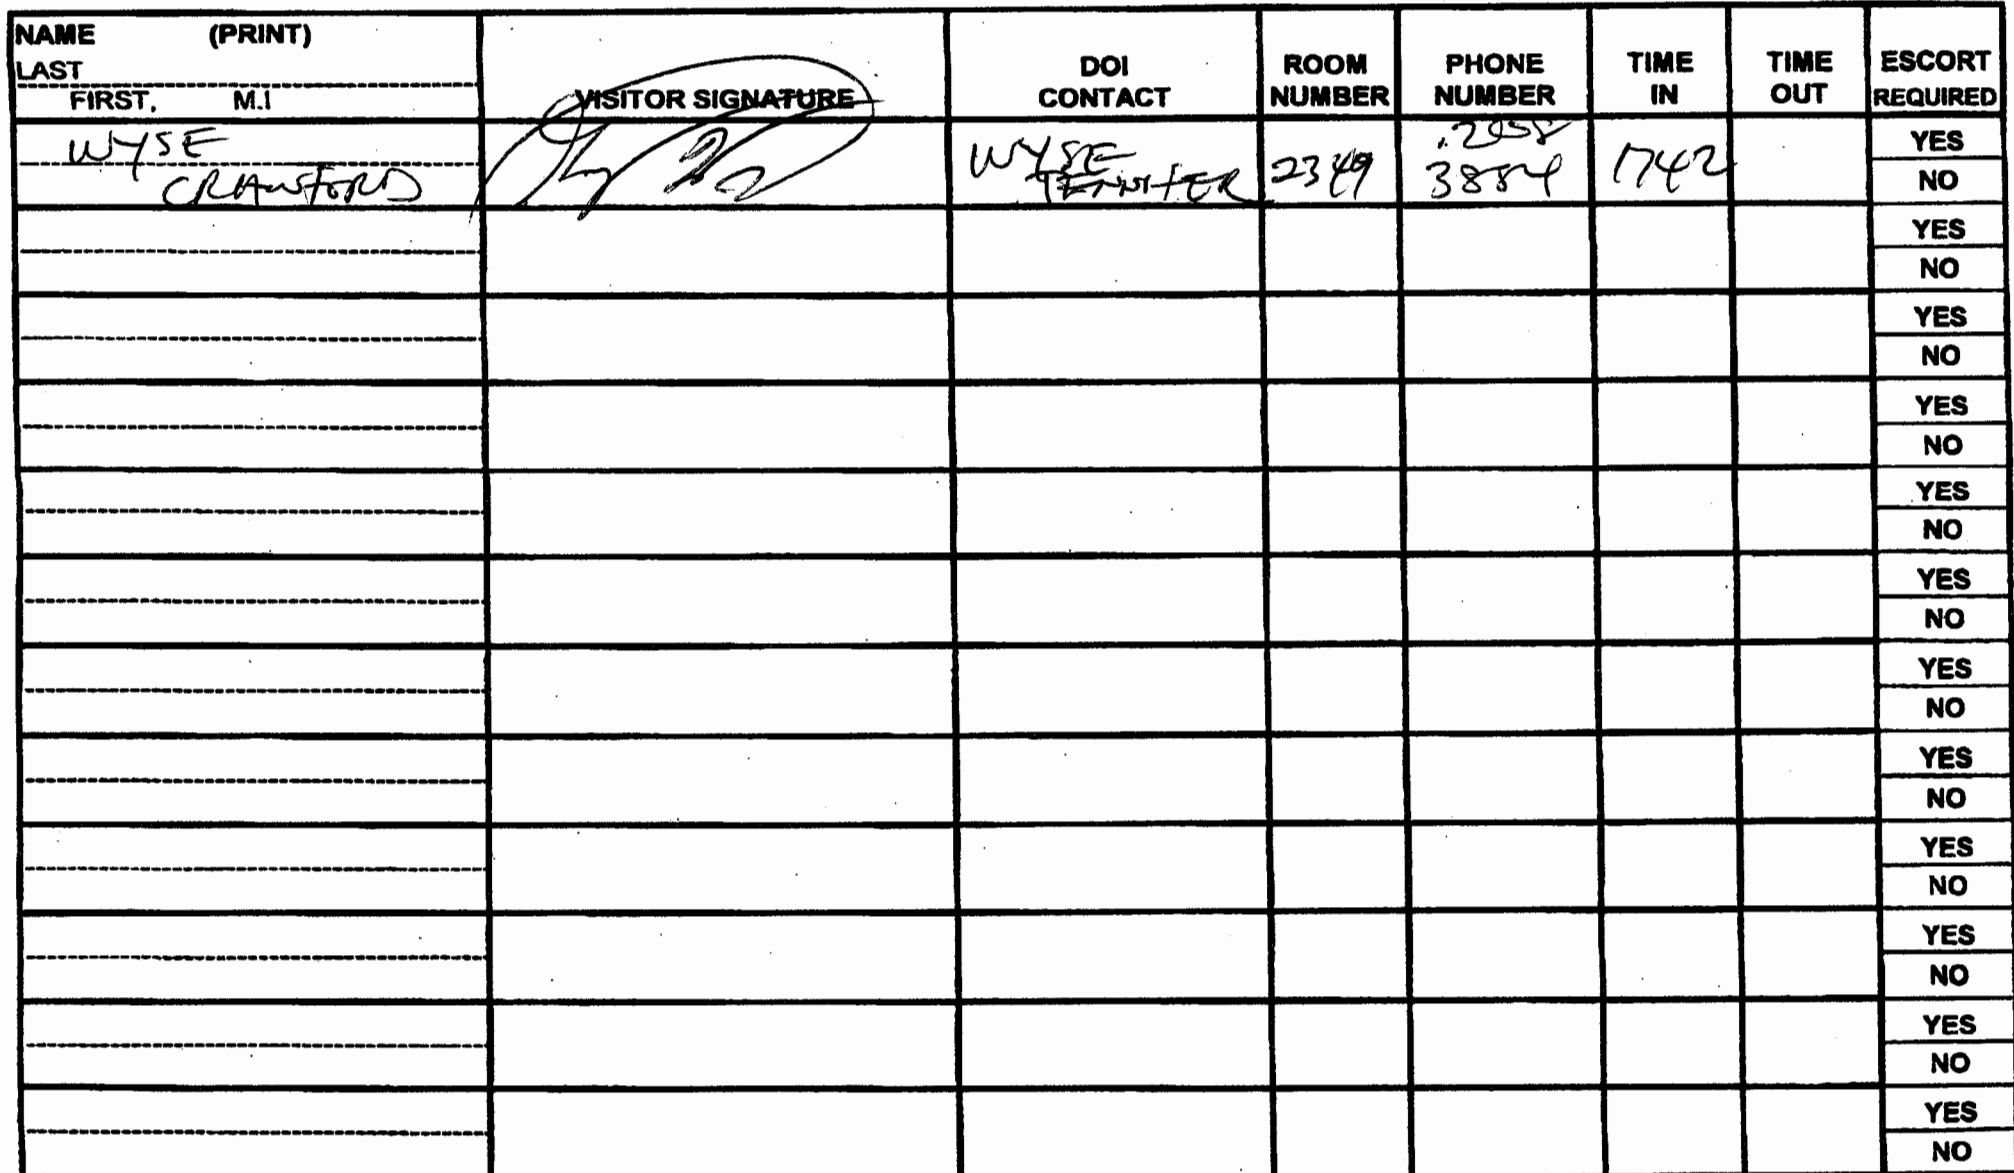 NAME (PRINT)
LAST
FIRST, M.I
VISITOR SIGNATURE
DOI
CONTACT
ROOM
NUMBER
PHONE
NUMBER
TIME
IN
TIME
OUT
ESCORT
REQUIRED
WYSE
CRAWFORD
WYSE
JENNIFER
2349
3884
1742
YES
NO
YES
NO
YES
NO
YES
NO
YES
NO
YES
NO
YES
NO
YES
NO
YES
NO
YES
NO
YES
NO
YES
NO